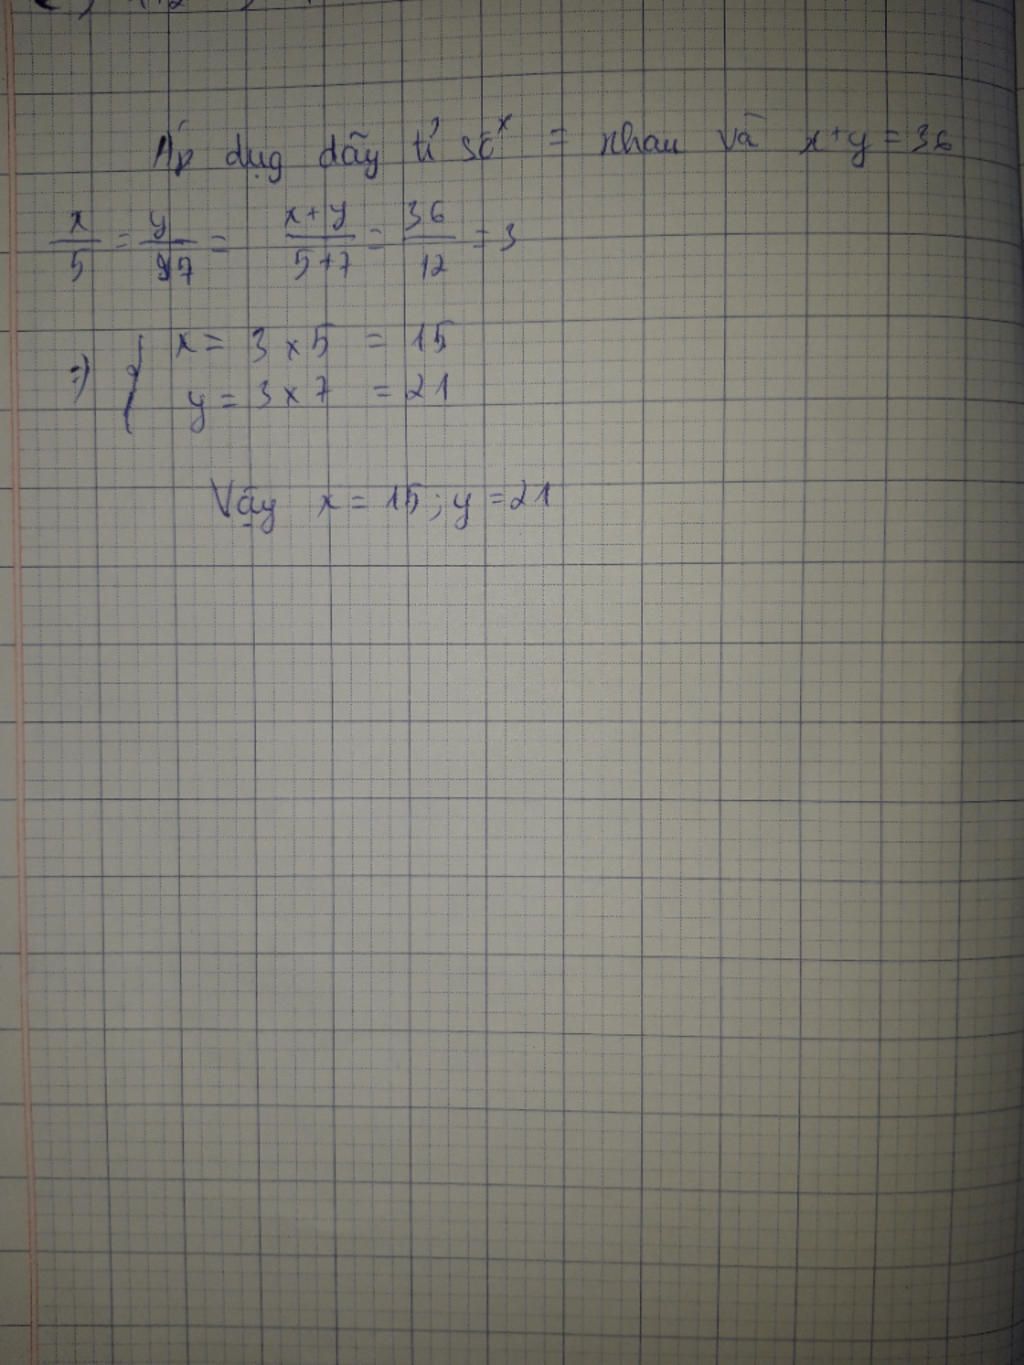 Áp dụg dãy tỉ số = nhau và x+y=36
x/5 = y/7 = x+y/5+7 = 36/12 = 3
=> { x = 3 x 5 = 15
y = 3 x 7 = 21
Vậy x = 15; y = 21